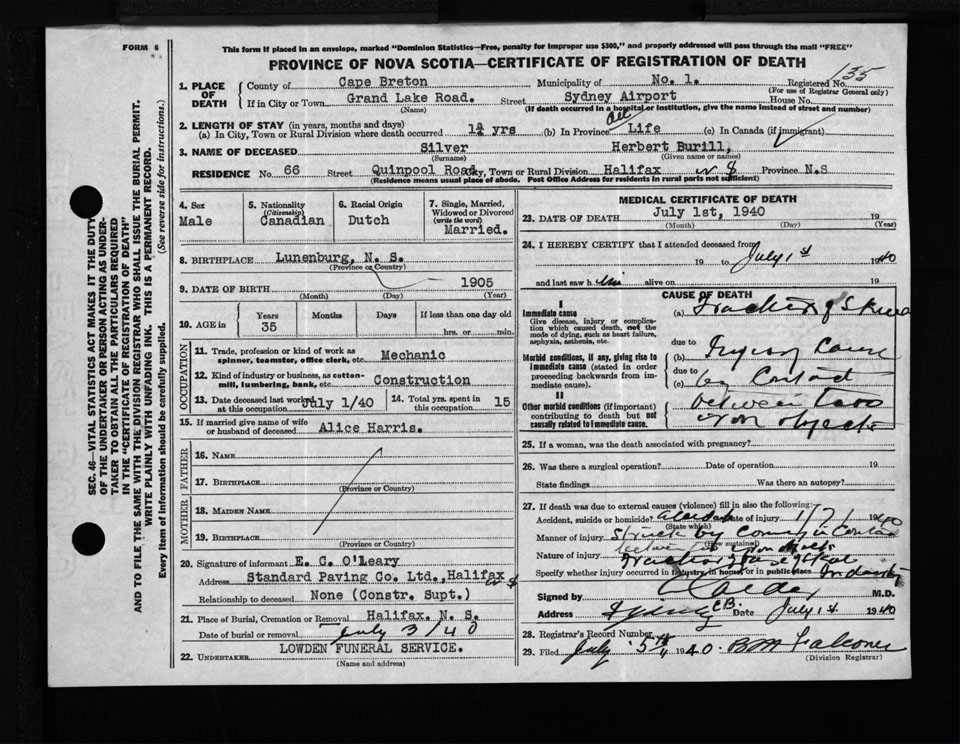 FORM 6
This form if placed in an envelope, marked "Dominion Statistics—Free, penalty for improper use $300," and properly addressed will pass through the mail "FREE"
PROVINCE OF NOVA SCOTIA—CERTIFICATE OF REGISTRATION OF DEATH
135
1. PLACE OF DEATH County of Cape Breton Municipality of No. 1. Registered No.
(For use of Registrar General only)
If in City or Town Grand Lake Road. Street Sydney Airport House No.
(Name) (If death occurred in a hospital or institution, give the name instead of street and number)
2. LENGTH OF STAY (in years, months and days)
(a) In City, Town or Rural Division where death occurred 1¾ yrs (b) In Province All Life (c) In Canada (if immigrant)
3. NAME OF DECEASED Silver Herbert Burill,
(Surname) (Given name or names)
RESIDENCE No. 66 Street Quinpool Road City, Town or Rural Division Halifax N S Province N.S
(Residence means usual place of abode. Post Office Address for residents in rural parts not sufficient)
4. Sex Male
5. Nationality (Citizenship) Canadian
6. Racial Origin Dutch
7. Single, Married, Widowed or Divorced (write the word) Married.
8. BIRTHPLACE Lunenburg, N. S.
(Province or Country)
9. DATE OF BIRTH 1905
(Month) (Day) (Year)
10. AGE in Years 35 Months Days If less than one day old hrs. or min.
OCCUPATION
11. Trade, profession or kind of work as spinner, teamster, office clerk, etc. Mechanic
12. Kind of industry or business, as cotton-mill, lumbering, bank, etc. Construction
13. Date deceased last worked at this occupation July 1/40
14. Total yrs. spent in this occupation 15
15. If married give name of wife or husband of deceased Alice Harris.
FATHER
16. NAME
17. BIRTHPLACE
(Province or Country)
MOTHER
18. MAIDEN NAME
19. BIRTHPLACE
(Province or Country)
20. Signature of informant E. C. O'Leary
Address Standard Paving Co. Ltd., Halifax N S
Relationship to deceased None (Constr. Supt.)
21. Place of Burial, Cremation or Removal Halifax. N. S.
Date of burial or removal July 3/40
22. UNDERTAKER LOWDEN FUNERAL SERVICE.
(Name and address)
MEDICAL CERTIFICATE OF DEATH
23. DATE OF DEATH July 1st, 1940 19
(Month) (Day) (Year)
24. I HEREBY CERTIFY that I attended deceased from
19 to July 1st 1940
and last saw him alive on 19
CAUSE OF DEATH
I
Immediate cause
Give disease, injury or complication which caused death, not the mode of dying, such as heart failure, asphyxia, asthenia, etc.
(a) Fracture of Skull
due to
Morbid conditions, if any, giving rise to immediate cause (stated in order proceeding backwards from immediate cause).
(b)
due to
(c) by Contact
II
Other morbid conditions (if important) contributing to death but not causally related to immediate cause.
between two
iron objects
25. If a woman, was the death associated with pregnancy?
26. Was there a surgical operation? Date of operation 19
State findings Was there an autopsy?
27. If death was due to external causes (violence) fill in also the following:
Accident, suicide or homicide? Accident Date of injury 1/7/ 1940
(State which)
Manner of injury struck by coming in Contact
(How sustained)
between two iron objects
Nature of injury Fracture of base of skull
Specify whether injury occurred in industry, in home, or in public place Industry
Signed by M.D.
Address Sydney C.B. Date July 1st 1940
28. Registrar's Record Number
29. Filed July 5th 1940 B M Falconer
(Division Registrar)
SEC. 46—VITAL STATISTICS ACT MAKES IT THE DUTY
OF THE UNDERTAKER OR PERSON ACTING AS UNDER-
TAKER TO OBTAIN ALL THE PARTICULARS REQUIRED
IN THE "CERTIFICATE OF REGISTRATION OF DEATH"
AND TO FILE THE SAME WITH THE DIVISION REGISTRAR WHO SHALL ISSUE THE BURIAL PERMIT.
WRITE PLAINLY WITH UNFADING INK. THIS IS A PERMANENT RECORD.
Every item of information should be carefully supplied. (See reverse side for instructions.)